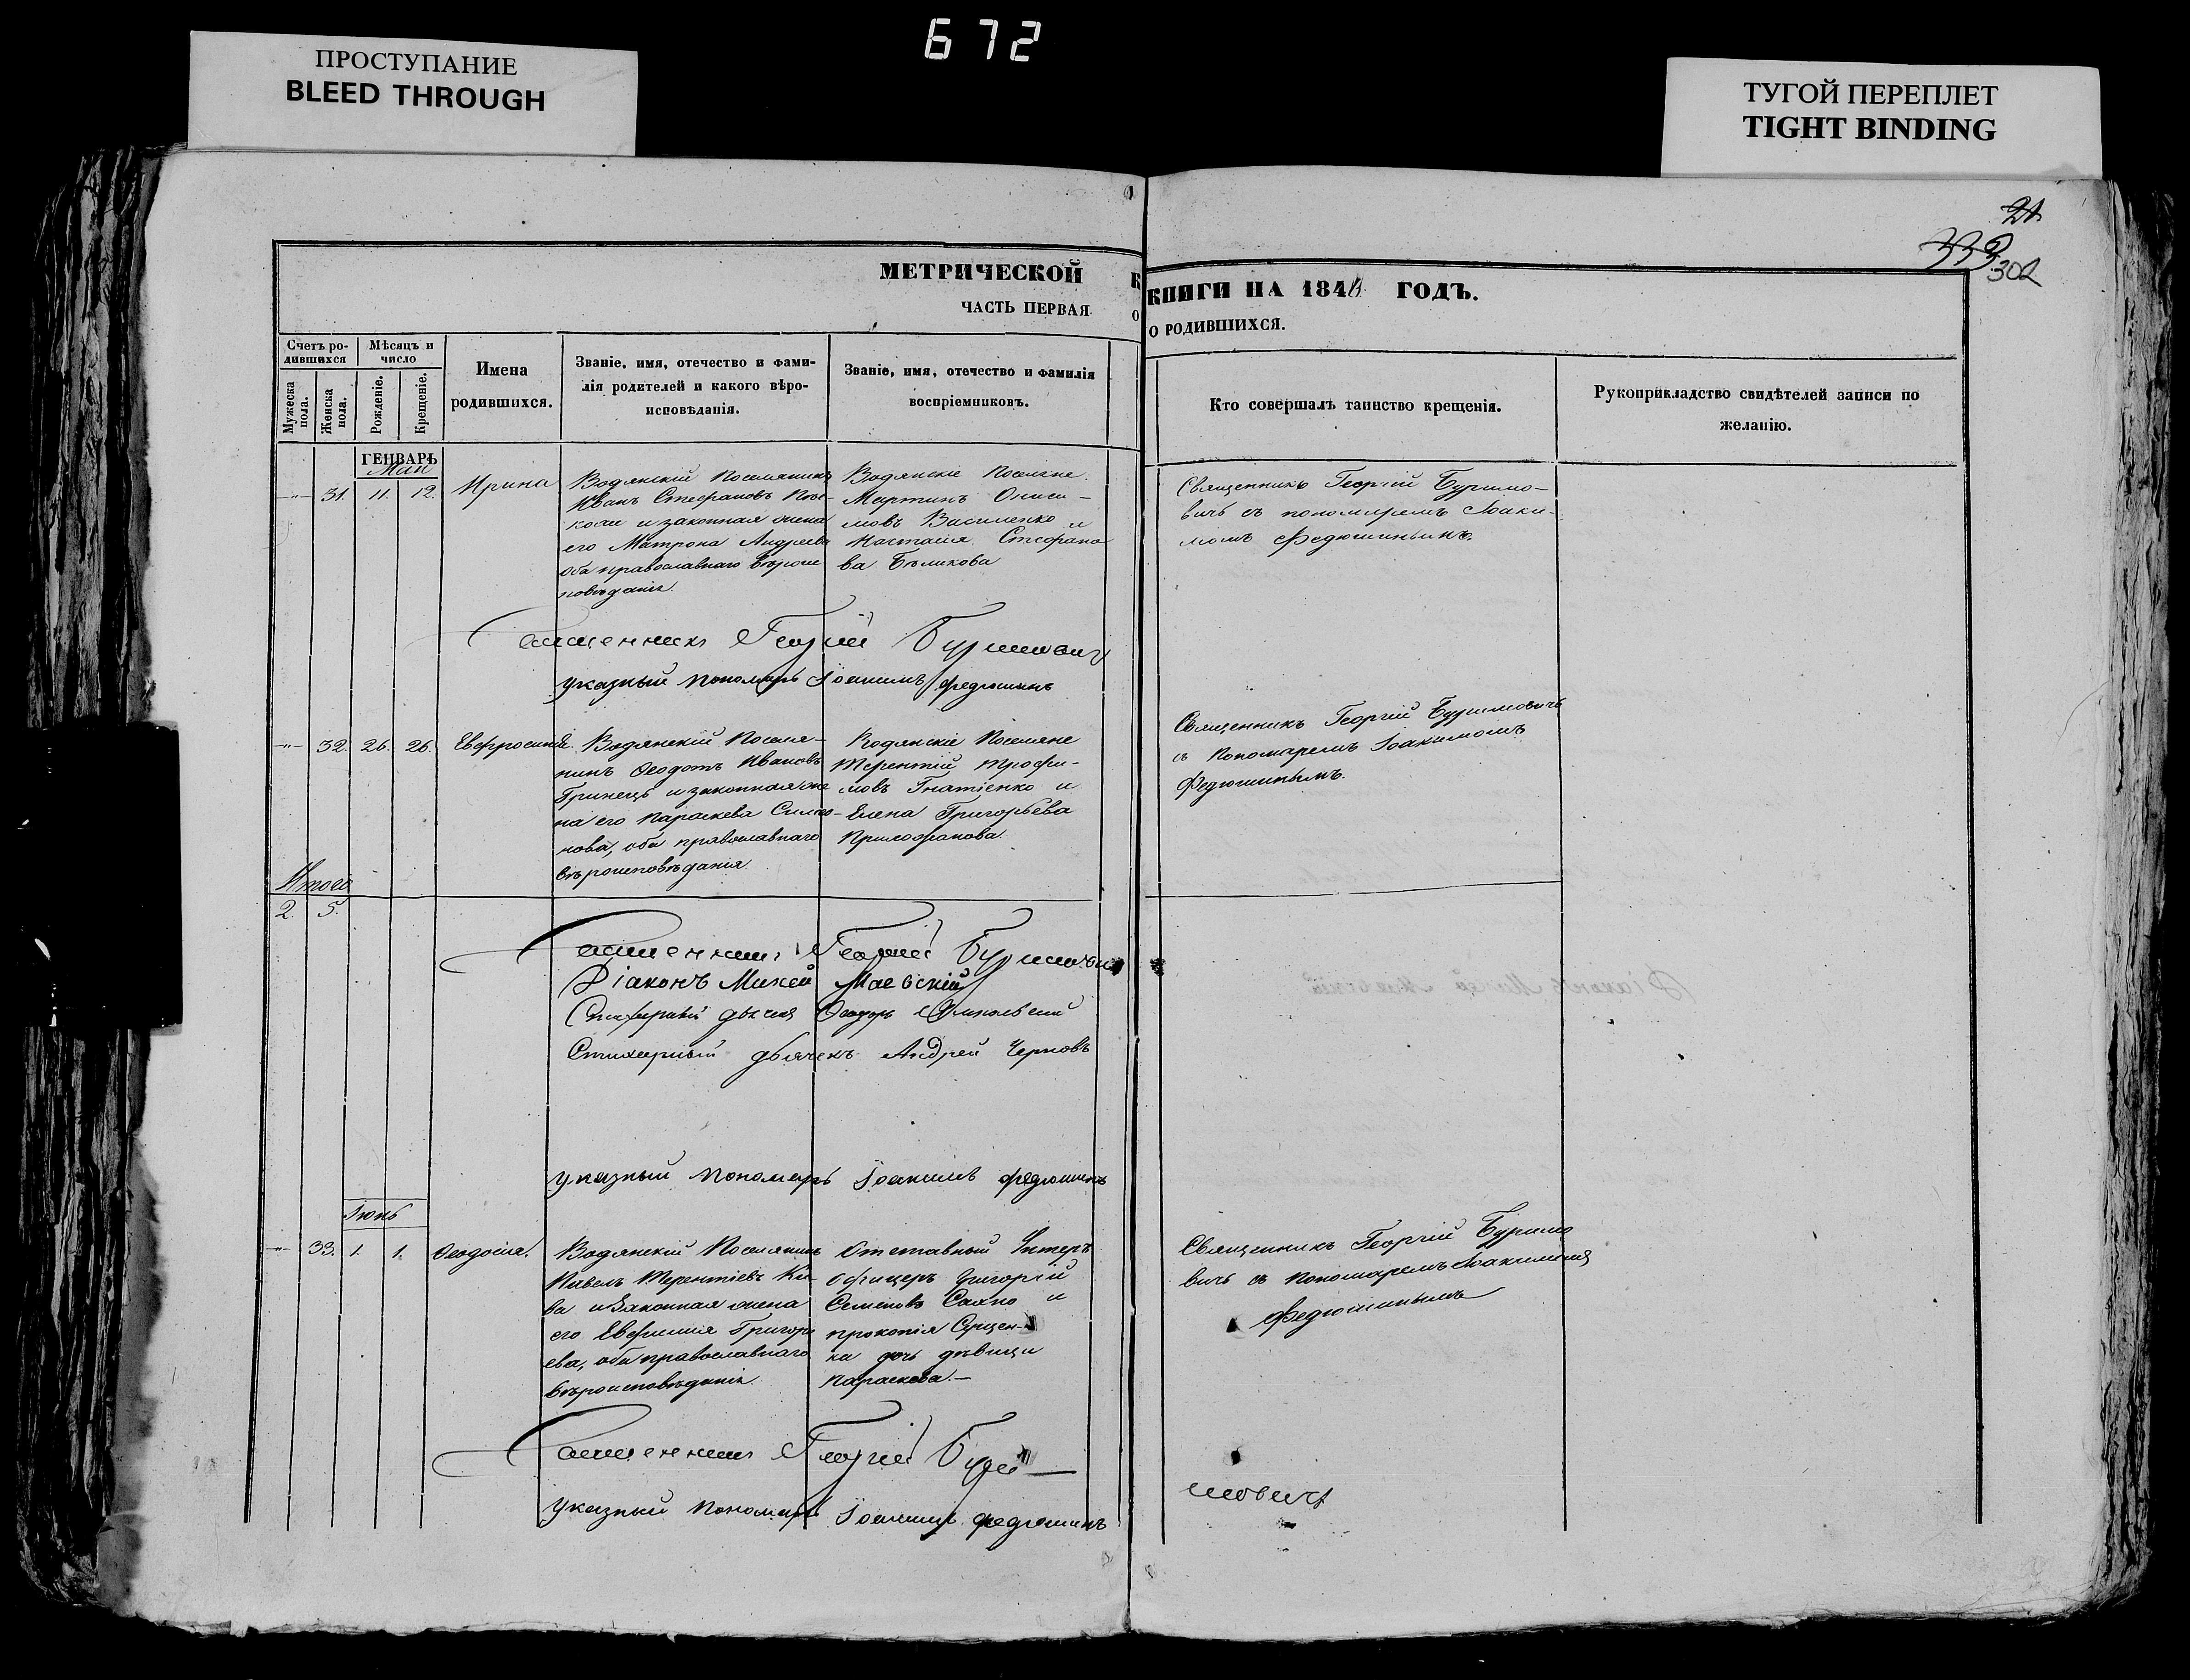 672
ПРОСТУПАНИЕ
BLEED THROUGH
ТУГОЙ ПЕРЕПЛЕТ
TIGHT BINDING
21
339
302
МЕТРИЧЕСКОЙ К
ЧАСТЬ ПЕРВАЯ О
КНИГИ НА 184 ГОДЪ.
О РОДИВШИХСЯ.
Счетъ ро-
дившихся
Мѣсяцъ и
число
Мужеска
пола.
Женска
пола.
Рожденіе.
Крещеніе.
Имена
родившихся.
Званіе, имя, отечество и фами-
лія родителей и какого вѣро-
исповѣданія.
Званіе, имя, отечество и фамилія
воспріемниковъ.
Кто совершалъ таинство крещенія.
Рукоприкладство свидѣтелей записи по
желанію.
ГЕНВАРЬ
Май
-"- 31. 11. 12. Ирина
Водянскій Поселянинъ
Иванъ Стефановъ
и законная жена
его Матрона Андреева
оба православнаго вѣроис
повѣданія.
Водянскіе Поселяне
МартинъОниси-
мовъ Василенко и
Настасія Стефано
ва Бѣликова
Священникъ Георгій Буримо-
вичъ съ пономаремъ Іоаки-
момъ Федюшинымъ.
Священникъ Георгій Буримович
указный пономарь Іоакимъ Федюшинъ
-"- 32. 26. 26. Евфросинія.
Водянскій Поселя-
нинъ Ѳеодотъ Ивановъ
Гринецъ и законная же
на его Параскева Симо-
нова, оба православнаго
вѣроисповѣданія.
Водянскіе Поселяне
Терентій Трофи-
мовъ Гнатіенко и
Елена Григорьева
Священникъ Георгій Буримовичъ
съ Пономаремъ Іоакимомъ
Федюшинымъ.
Итого
2. 5.
Священникъ Георгій Буримович
Діаконъ Михей Маевскій
Стихарный дьячекъ Ѳеодоръ
Стихарный дьячекъ Андрей Черновъ
указный Пономарь Іоакимъ Федюшинъ
Іюнь
-"- 33. 1. 1. Ѳеодосія.
Водянскій Поселянинъ
Павелъ Терентіевъ Ки-
ва и Законная жена
его Евфимія Григорь
ева, оба православнаго
вѣроисповѣданія.
Отставный Унтеръ
офицеръ Григорій
Семеновъ Сахно и
прокопія
ка дочь дѣвица
Параскева.—
Священникъ Георгій Буримо
вичъ съ Пономаремъ Іоакимомъ
Федюшинымъ
Священникъ Георгій Бури—
мовичъ
указный Пономарь Іоакимъ Федюшинъ